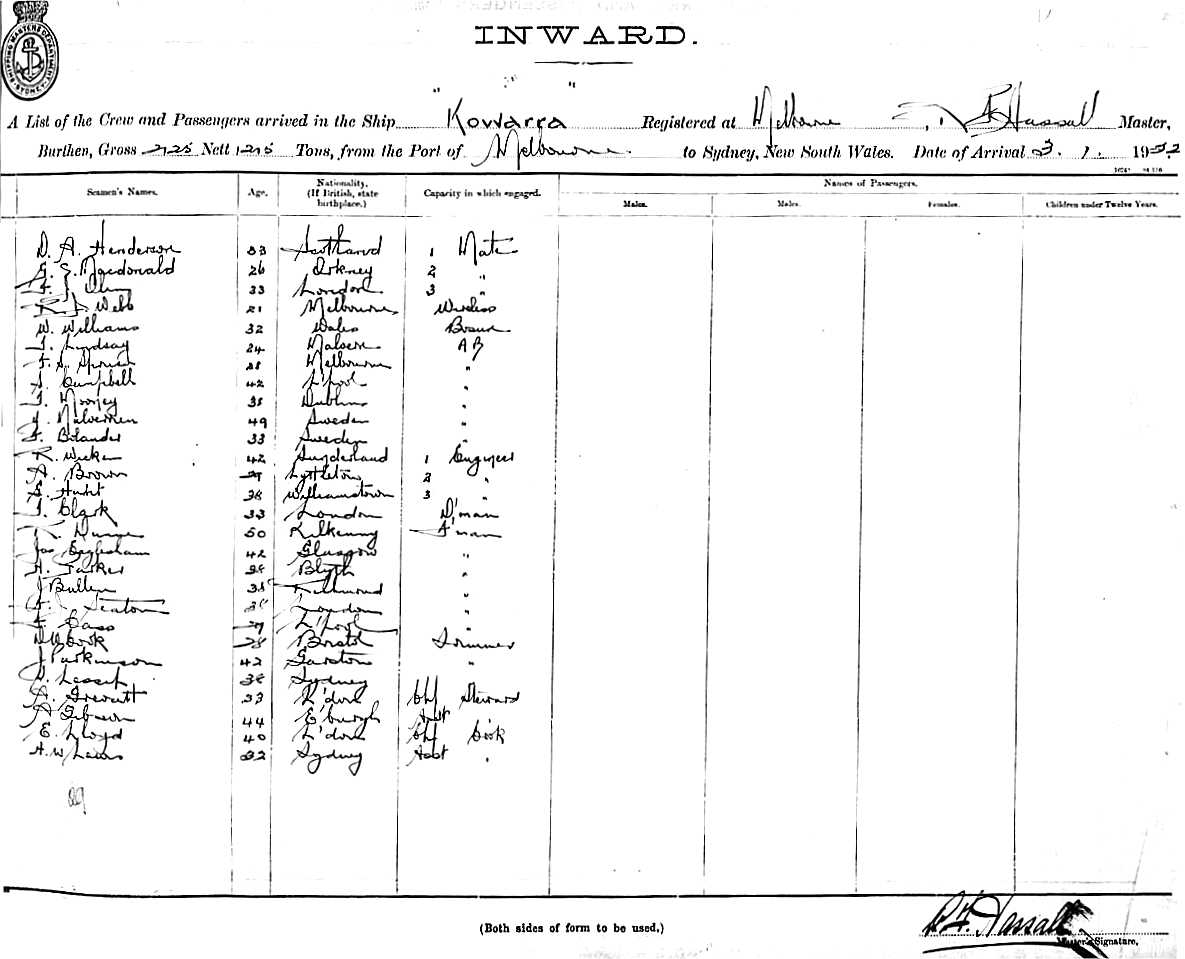 SHIPPING MASTERS DEPARTMENT SYDNEY
INWARD.
A List of the Crew and Passengers arrived in the Ship Kowarra Registered at Melbourne Hassall Master,
Burthen, Gross 2125 Nett 1215 Tons, from the Port of Melbourne to Sydney, New South Wales. Date of Arrival 3. 1. 1932
Seamen's Names. Age. Nationality. (If British, state birthplace.) Capacity in which engaged. Names of Passengers.
Males. Males. Females. Children under Twelve Years.
D. A. Henderson 33 Scotland 1 Mate
Macdonald 26 Orkney 2 "
33 London 3 "
Webb 21 Melbourne Wireless
W. Williams 32 Wales Bosun
Lindsay 24 Malvern AB
Melbourne "
Campbell 42 L'pool "
Mooney Dublin "
49 Sweden "
Bolander 33 Sweden "
R. 42 Sunderland 1 Engineer
A. Brown Lyttleton 2 "
38 Williamstown 3 "
Clark 33 London D'man
50 Kilkenny F'man
Jas Eaglesham 42 Glasgow "
Parker Blyth "
J Bullen Richmond "
Seaton London "
Cass L'pool
Cook Bristol Trimmer
J Parkinson 42 Garston "
38 Sydney
A. 33 L'don Chf Steward
A Gibson 44 E'burgh Asst
E. Lloyd 40 L'don Chf Cook
A. W Lewis 32 Sydney Asst "
29
(Both sides of form to be used.)
Hassall
Master's Signature,